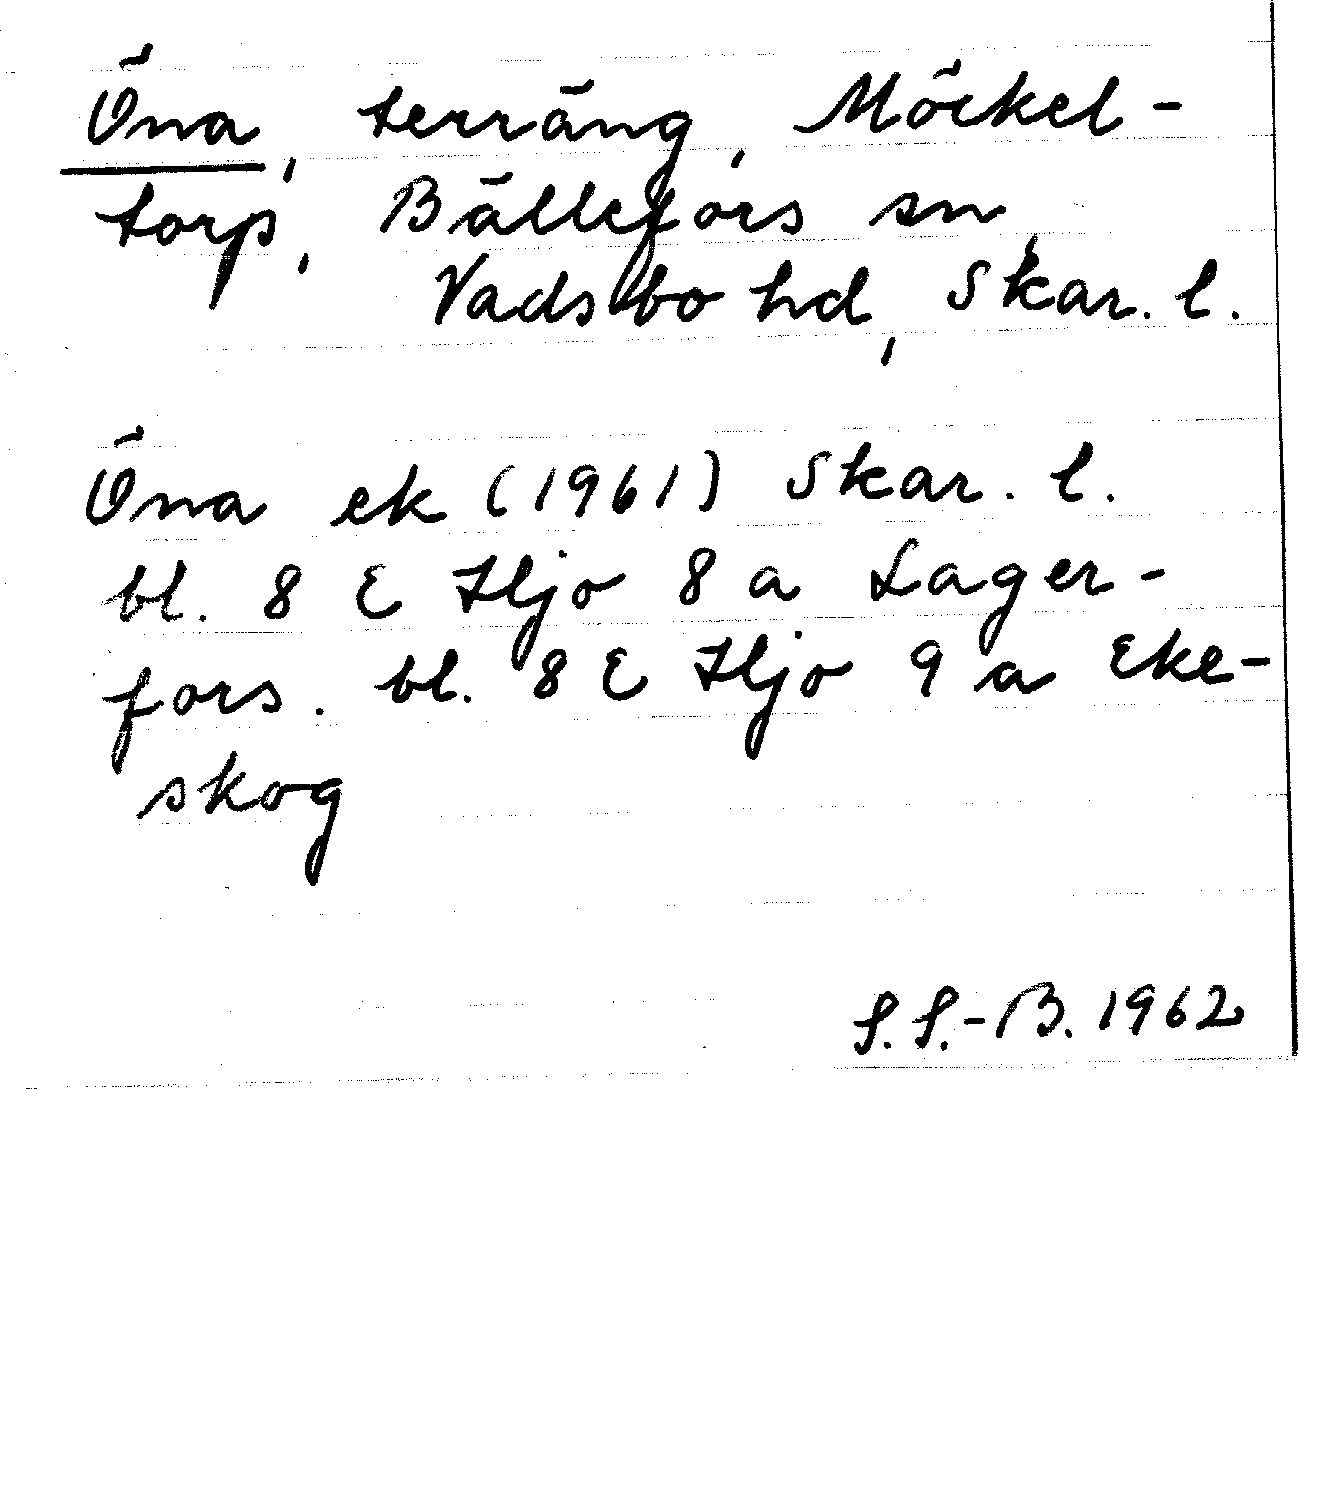 Öna, terräng, Möckel-
torp, Bällefors sn,
Vadsbo hd, Skar. l.
Öna ek (1961) Skar. l.
bl. 8 E Hjo 8 a Lager-
fors. bl. 8 E Hjo 9 a Eke-
skog
S. S.-B. 1962